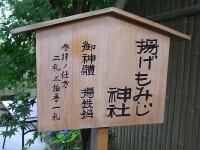 揚げもみじ
神社
御神體 揚鉄鍋
参拝ノ仕方
二礼三拍手一礼